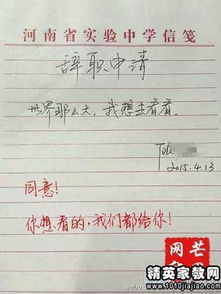 河南省实验中学信笺
辞职申请
世界那么大，我想去看看。
2015.4.13
同意！
你想看的，我们都给你！
网芒
精英家教网
www.1010jiajiao.com